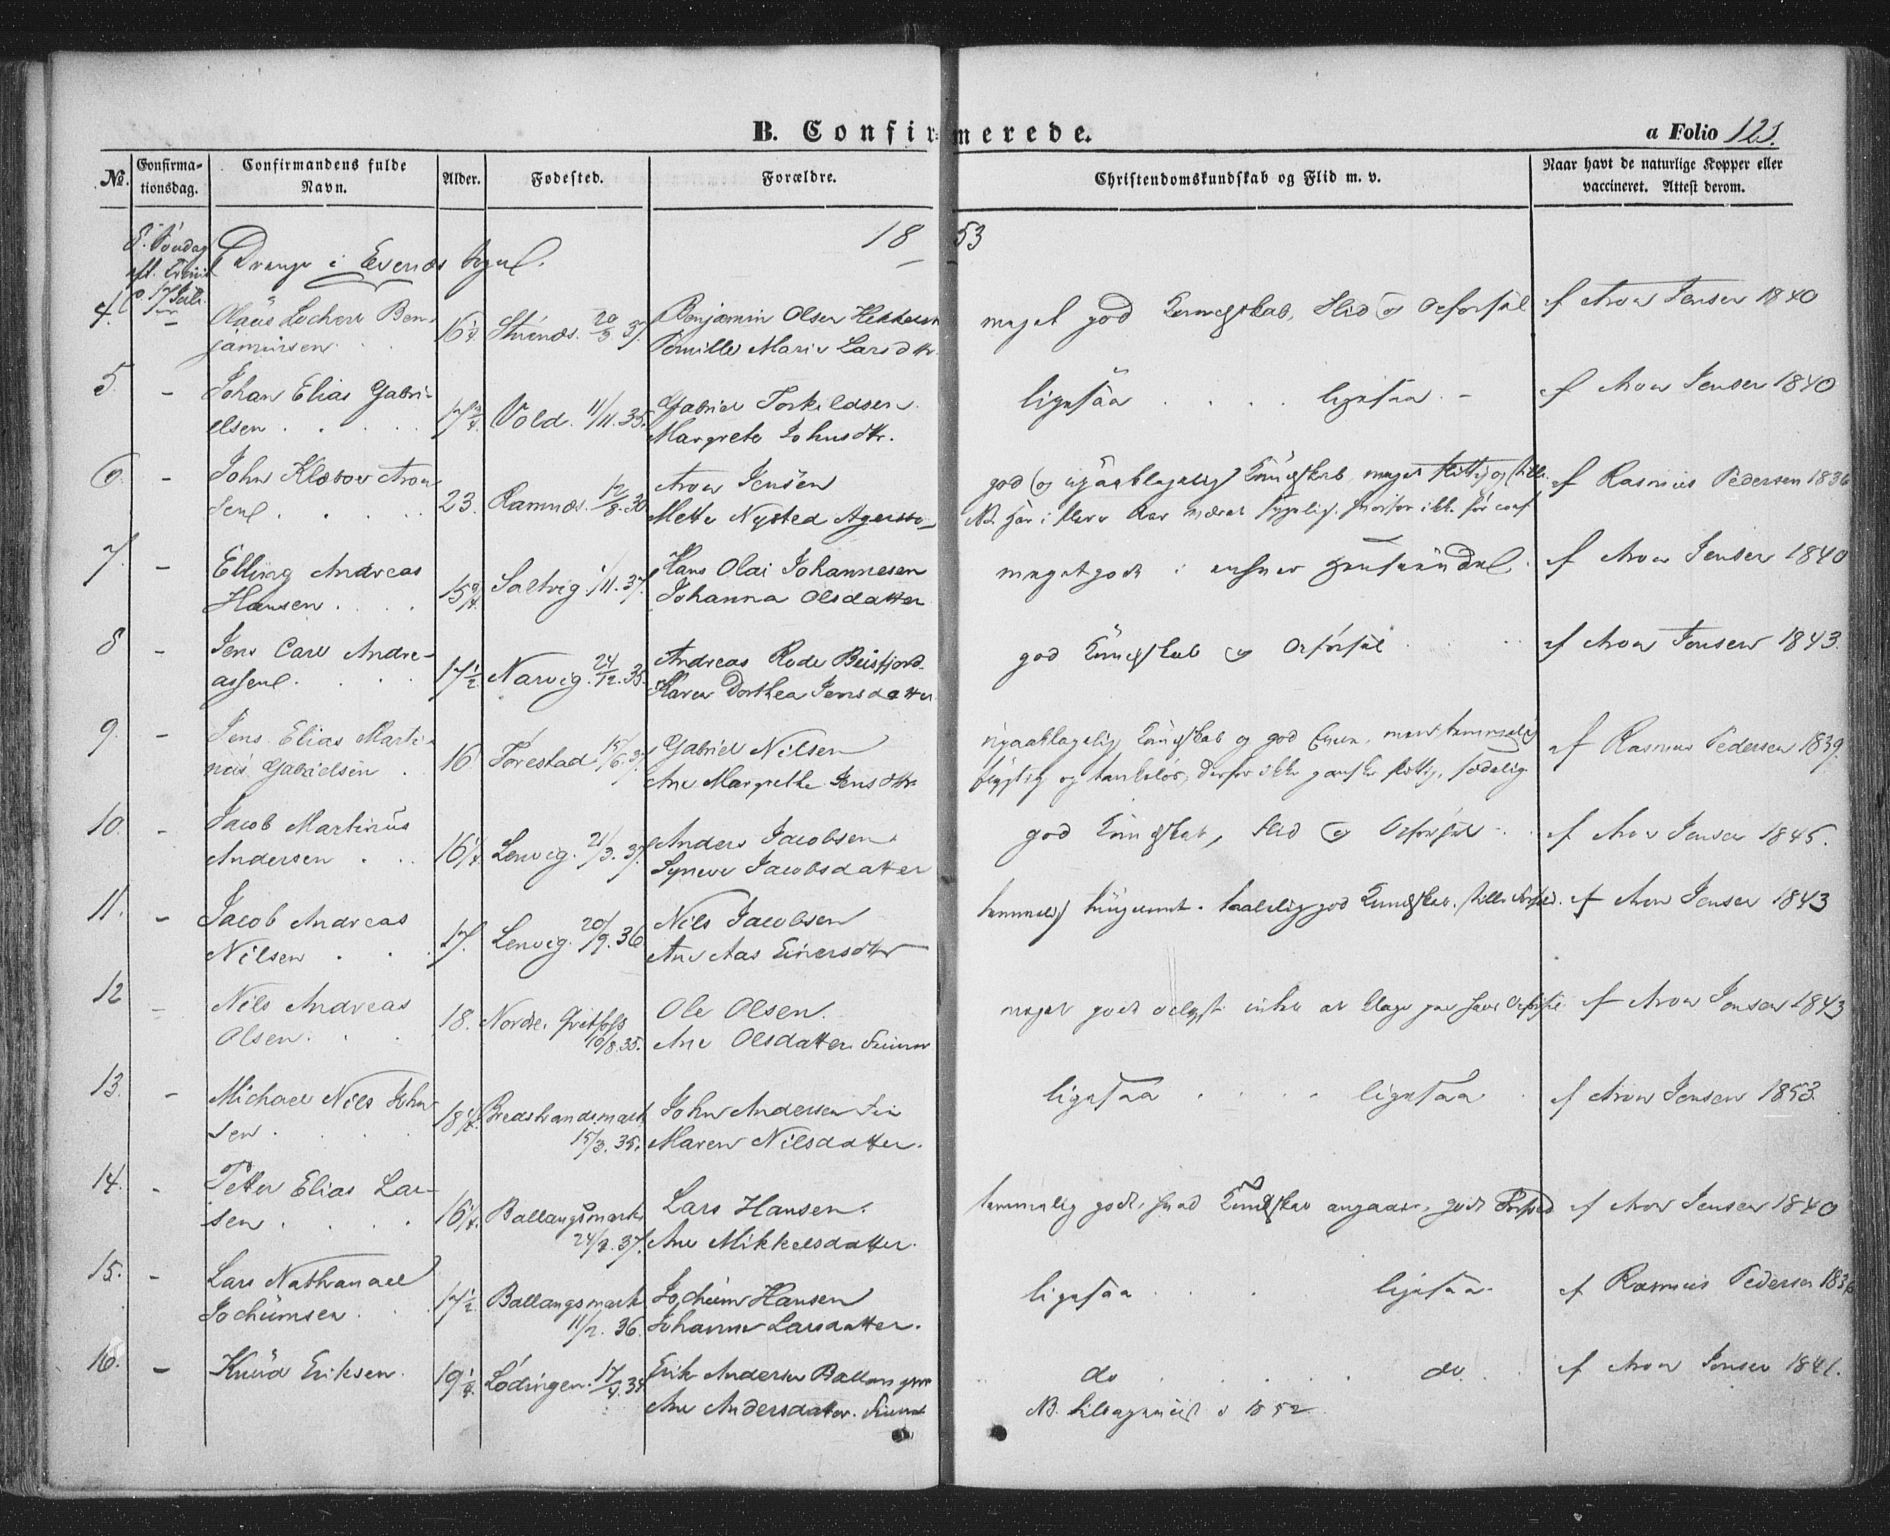 B. Confirmerede.
a Folio 121.
№. Confirmationsdag. Confirmandens fulde Navn. Alder. Fødested. Forældre. Christendomskundskab og Flid m. v. Naar havt de naturlige Kopper eller vaccineret. Attest derom.
1853
8. Søndag
Drenge i Evenæs Sogn.
17 Juli
4. Olaus Lochert Ben- 16¼ 20/3 37. Benjamin Olsen meget god Kundskab, Flid og Opførsel af Aron Jensen 1840
jaminsen Pernille Marie Larsdtr.
5 - Johan Elias Gabri- 17¾. Vold. 11/11. 35. Gabriel Torkildsen ligesaa . . . . ligesaa - af Aron Jensen 1840
elsen . . . . Margrete Johnsdtr.
6. - John Klæboe Aron 23. Ramnæs. 12/8. 30 Aron Jensen god og upaaklagelig Kundskab, meget flittig og af Rasmus Pedersen 1836
sen . . . . Mette Nysted Agersbo NB. har i flere Aar været sygelig, hvorfor ikke før conf
7. - Elling Andreas Saltvig 37. Hans Olai Johannesen meget godt i enhver Henseende. af Aron Jensen 1840
Hansen . . . . Johanna Olsdatter
8 - Jens Carl Andre- 17½. Narvig. 24/12. 35. Andreas Rode Beisfjord god Kundskab og Opførsel . . . af Aron Jensen 1843.
assen . . . . Karen Dorthea Jensdatter
9. - Jens Elias Marti- 16 Forestad 15/6. 37. Gabriel Nilsen upaaklagelig Kundskab og god Evner, men temmelig af Rasmus Pedersen 1839.
nus Gabrielsen . Ane Margrethe Jensdtr. flygtig og tankeløs, derfor ikke ganske flittig, sædelig
10. - Jacob Martinus 16¼. Lenvig. 21/3. 37. Anders Jacobsen god Kundskab, Flid og Opførsel . . af Aron Jensen 1845.
Andersen . . . Synøve Jacobsdatter
11. - Jacob Andreas 17. Lenvig. 20/9. 36 Nils Jacobsen temmelig taalelig god Kundskab. af Aron Jensen 1843
Nilsen . . . Ane Aas Einersdtr
12 - Nils Andreas 18. Nordre 10/8. 35. Ole Olsen. meget godt intet at klage paa hans Opførsel af Aron Jensen 1843
Olsen . . . Ane Olsdatter Finner
13. - Michael Nils John 18¼. Bredstrandsmark 15/3. 35. John Andersen Fin ligesaa . . . . ligesaa . af Aron Jensen 1853.
sen . . . . Maren Nilsdatter.
14. - Petter Elias Lar- 16¼. Ballangsmark 37. Lars Hansen. temmelig godt, hvad Kundskab angaaer, godt Forhold af Aron Jensen 1840
sen . . . . Ane Mikkelsdatter.
15. - Lars Nathanael 17½. Ballangsmark 11/2. 36. Jochum Hansen ligesaa . . . ligesaa. af Rasmus Pedersen 1836
Jochumsen . . . Johanna Larsdatter.
16. - Knud Eriksen. 19¼. Lødingen. 17/4. 34 Erik Andersen Ballangs do . . . . do . . af Aron Jensen 1841.
Ane Andersdatter. NB. i 1852